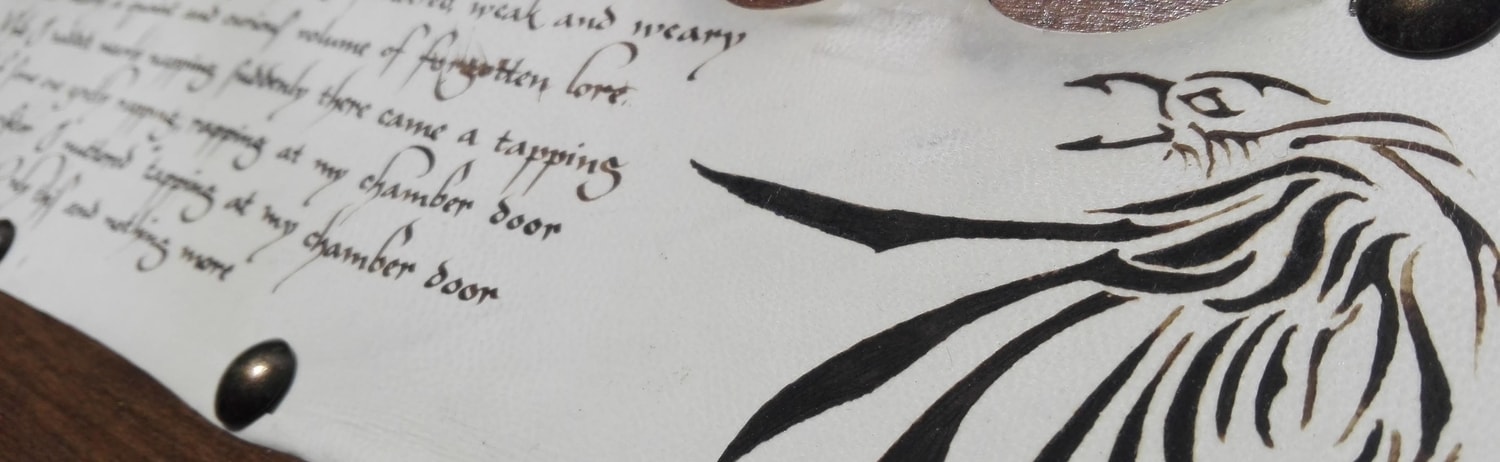 weak and weary
and curious volume of forgotten lore
nearly napping suddenly there came a tapping
gently rapping, rapping at my chamber door
I muttered tapping at my chamber door
Only this and nothing more